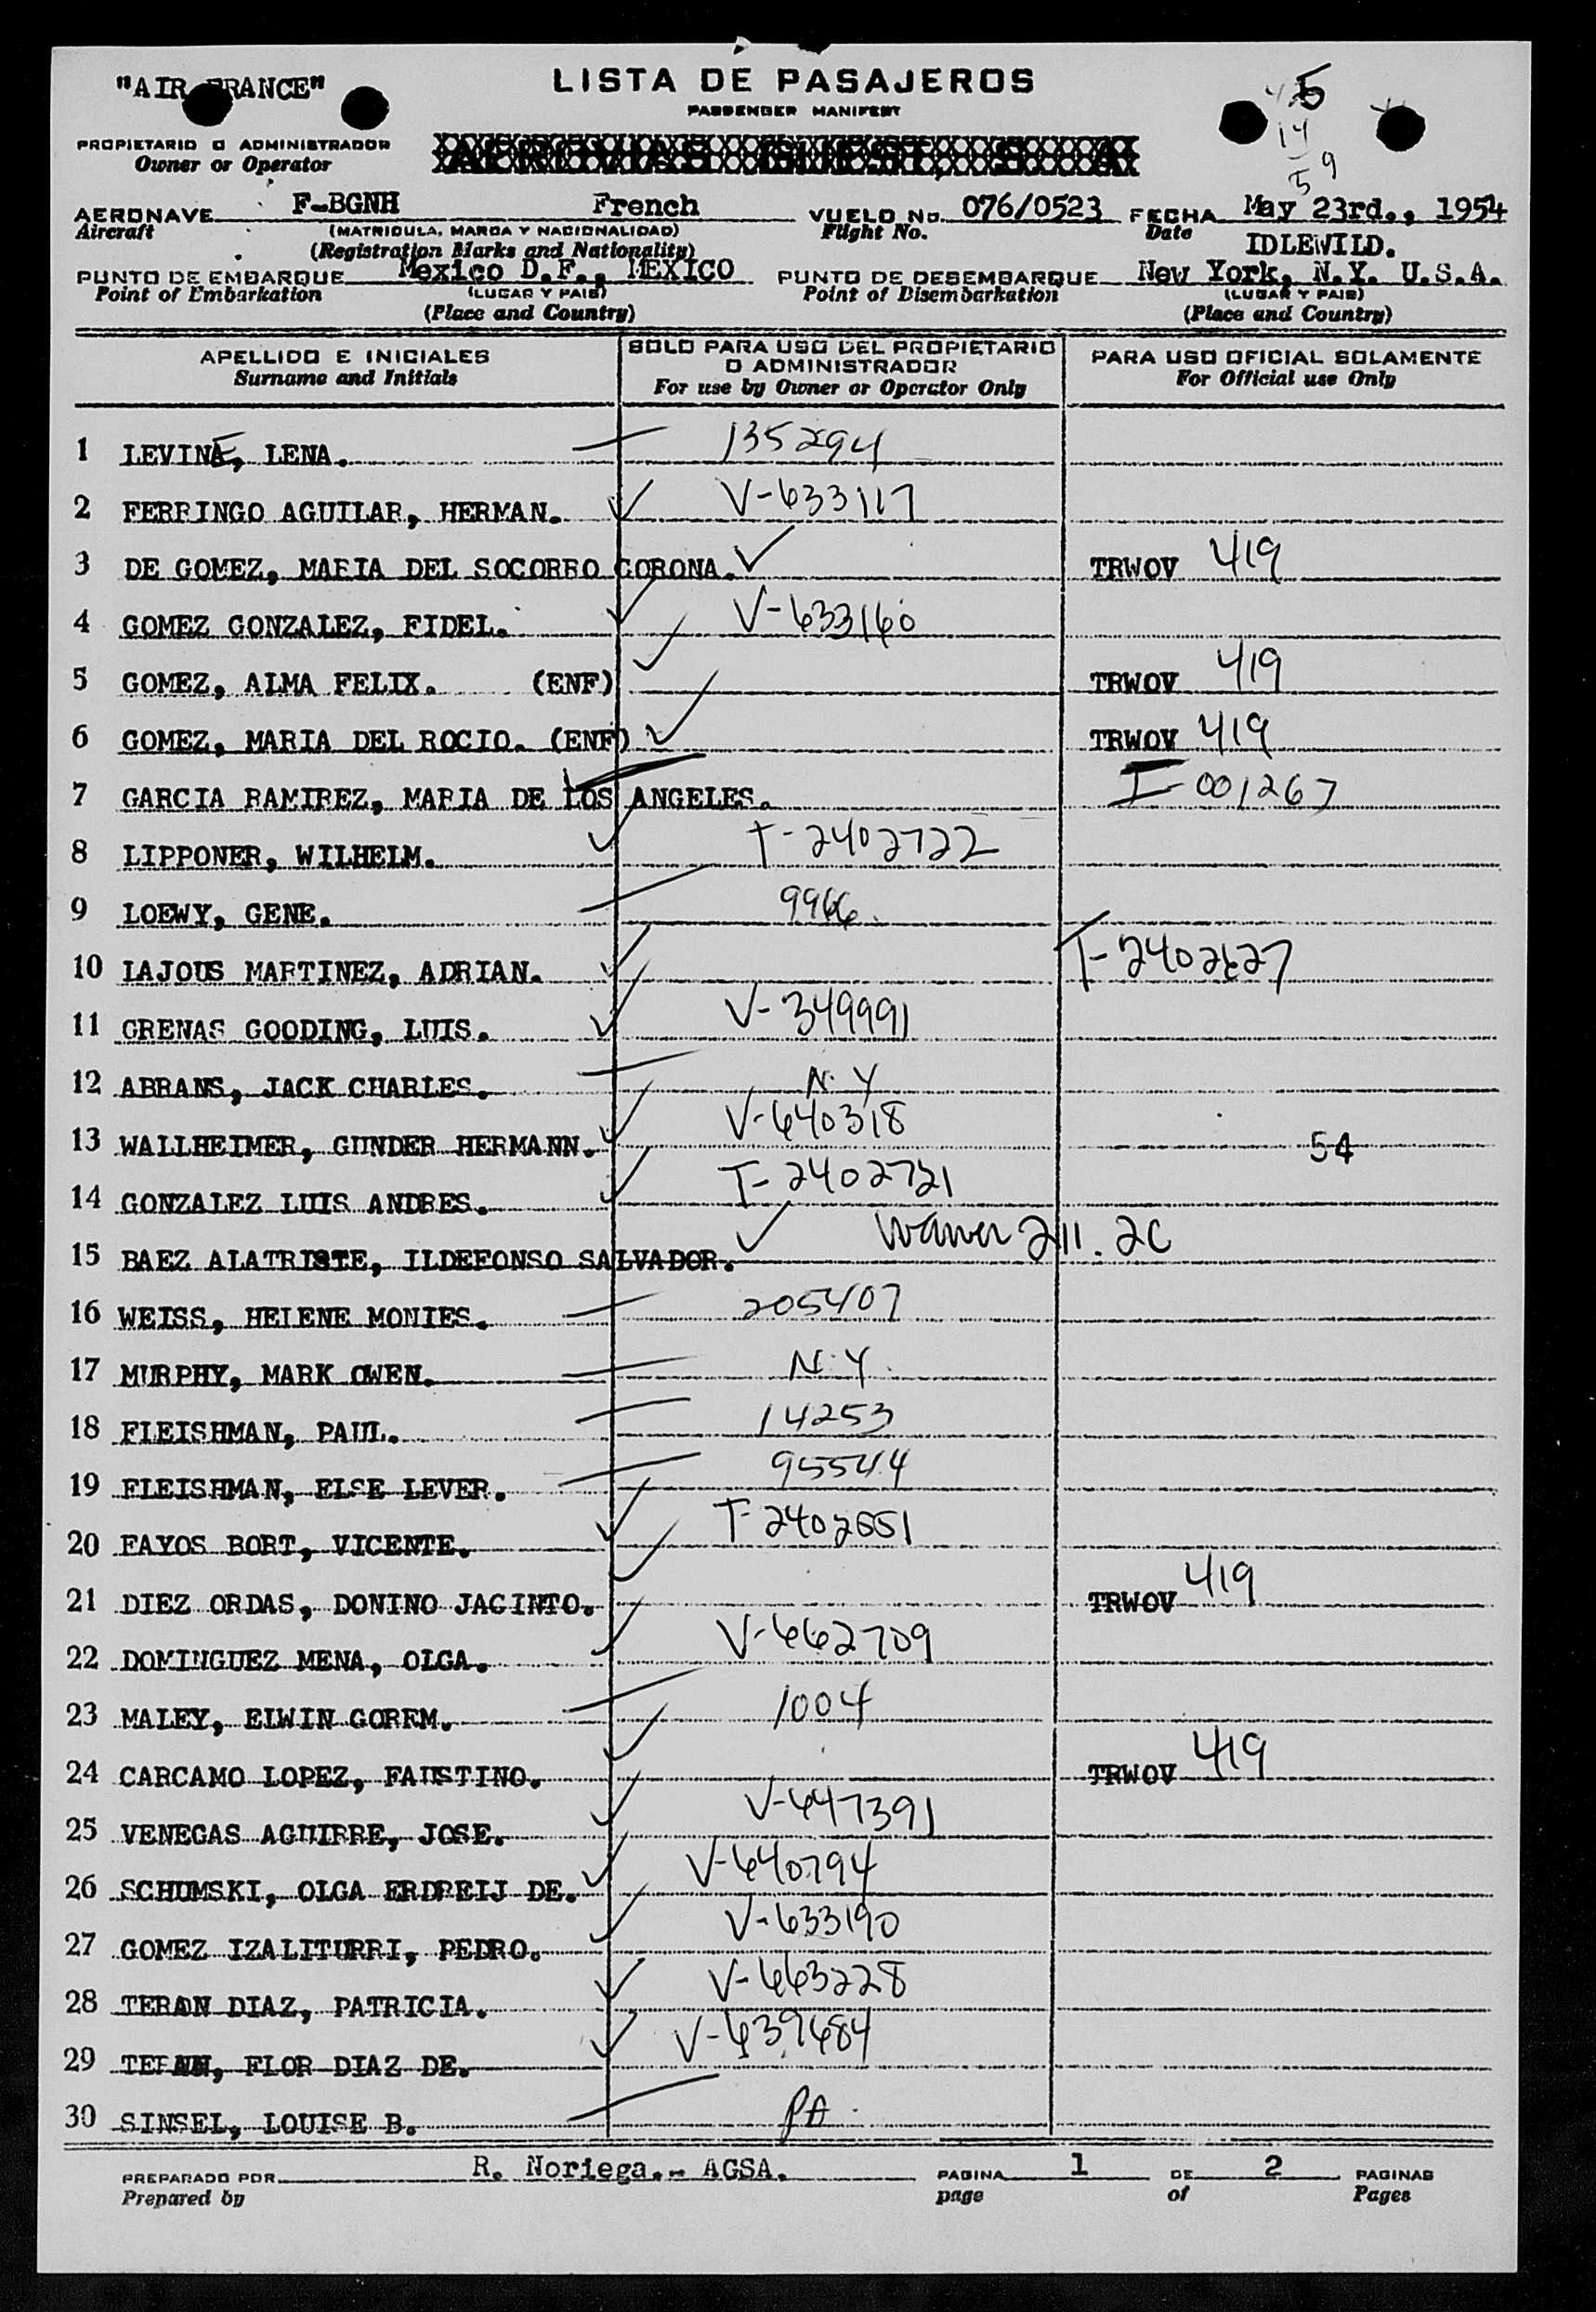 "AIR FRANCE"
LISTA DE PASAJEROS
PASSENGER MANIFEST
PROPIETARIO O ADMINISTRADOR
Owner or Operator
AERONAVE F-BGNH French VUELO No. 076/0523 FECHA May 23rd., 1954
Aircraft (MATRICULA, MARCA Y NACIONALIDAD) Flight No. Date
(Registration Marks and Nationality) IDLEWILD.
PUNTO DE EMBARQUE Mexico D.F., MEXICO PUNTO DE DESEMBARQUE New York, N.Y. U.S.A.
Point of Embarkation (LUGAR Y PAIS) Point of Disembarkation (LUGAR Y PAIS)
(Place and Country) (Place and Country)
APELLIDO E INICIALES SOLO PARA USO DEL PROPIETARIO O ADMINISTRADOR PARA USO OFICIAL SOLAMENTE
Surname and Initials For use by Owner or Operator Only For Official use Only
1 LEVINE, LENA. 135294
2 FERRINGO AGUILAR, HERMAN. V-633117
3 DE GOMEZ, MARIA DEL SOCORRO CORONA. TRWOV 419
4 GOMEZ GONZALEZ, FIDEL. V-633160
5 GOMEZ, ALMA FELIX. (ENF) TRWOV 419
6 GOMEZ, MARIA DEL ROCIO. (ENF) TRWOV 419
7 GARCIA RAMIREZ, MARIA DE LOS ANGELES. I-001267
8 LIPPONER, WILHELM. T-2402722
9 LOEWY, GENE. 9966
10 LAJOUS MARTINEZ, ADRIAN. T-2402627
11 GRENAS GOODING, LUIS. V-349991
12 ABRANS, JACK CHARLES. N.Y
13 WALLHEIMER, GUNDER HERMANN. V-640318 54
14 GONZALEZ LUIS ANDRES. T-2402721
15 BAEZ ALATRISTE, ILDEFONSO SALVADOR. Waiver 211.20
16 WEISS, HELENE MONIES. 205407
17 MURPHY, MARK OWEN. N.Y.
18 FLEISHMAN, PAUL. 14253
19 FLEISHMAN, ELSE LEVER. 95544
20 FAYOS BORT, VICENTE. T-2402651
21 DIEZ ORDAS, DONINO JACINTO. TRWOV 419
22 DOMINGUEZ MENA, OLGA. V-662709
23 MALEY, ELWIN GORRM. 1004
24 CARCAMO LOPEZ, FAUSTINO. TRWOV 419
25 VENEGAS AGUIRRE, JOSE. V-647391
26 SCHUMSKI, OLGA ERDREIJ DE. V-640794
27 GOMEZ IZALITURRI, PEDRO. V-633190
28 TERAN DIAZ, PATRICIA. V-663228
29 TERAN, FLOR DIAZ DE. V-639684
30 SINSEL, LOUISE B. PA.
PREPARADO POR R. Noriega.- AGSA. PAGINA 1 DE 2 PAGINAS
Prepared by page of Pages